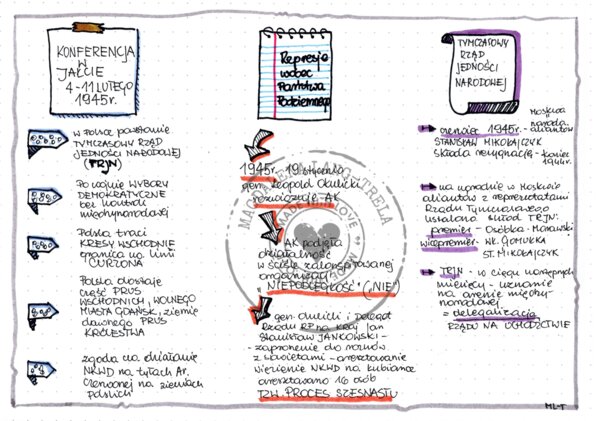 KONFERENCJA
W
JAŁCIE
4-11 LUTEGO
1945r.
w Polsce powstanie
TYMCZASOWY RZĄD
JEDNOŚCI NARODOWEJ
(TRJN)
Po wojnie WYBORY
DEMOKRATYCZNE
bez kontroli
międzynarodowej
Polska traci
KRESY WSCHODNIE
granica na linii
CURZONA
Polska dostaje
część PRUS
WSCHODNICH, WOLNEGO
MIASTA GDAŃSK, ziemie
dawnego PRUS
KRÓLESTWA
zgoda na działanie
NKWD na tyłach Ar.
Czerwonej na ziemiach
polskich
Represje
wobec
Państwa
Podziemnego
1945r. 19 stycznia
gen. Leopold Okulicki
rozwiązuje AK
AK podjęła
działalność
w ściśle zakonspirowanej
organizacji
"NIEPODLEGŁOŚĆ" ("NIE")
gen. Okulicki i Delegat
Rządu RP na Kraj Jan
Stanisław JANKOWSKI -
- zaproszenie do rozmów
z sowietami - aresztowanie
więzienie NKWD na Łubiance
aresztowano 16 osób
TZW. PROCES SZESNASTU
TYMCZASOWY
RZĄD
JEDNOŚCI
NARODOWEJ
Moskwa
narada
czerwiec 1945r. - aliantów
STANISŁAW MIKOŁAJCZYK
składa rezygnację - koniec
1944r.
na naradzie w Moskwie
aliantów z reprezentantami
Rządu Tymczasowego
ustalono skład TRJN:
premier - Osóbka-Morawski
wicepremier - WŁ. GOMUŁKA
ST. MIKOŁAJCZYK
TRJN - w ciągu następnych
miesięcy - uznanie
na arenie między-
narodowej
= delegalizacja
RZĄDU NA UCHODŹSTWIE
MAGDALENA LANG-TRELA
MADE WITH LOVE
ML-T